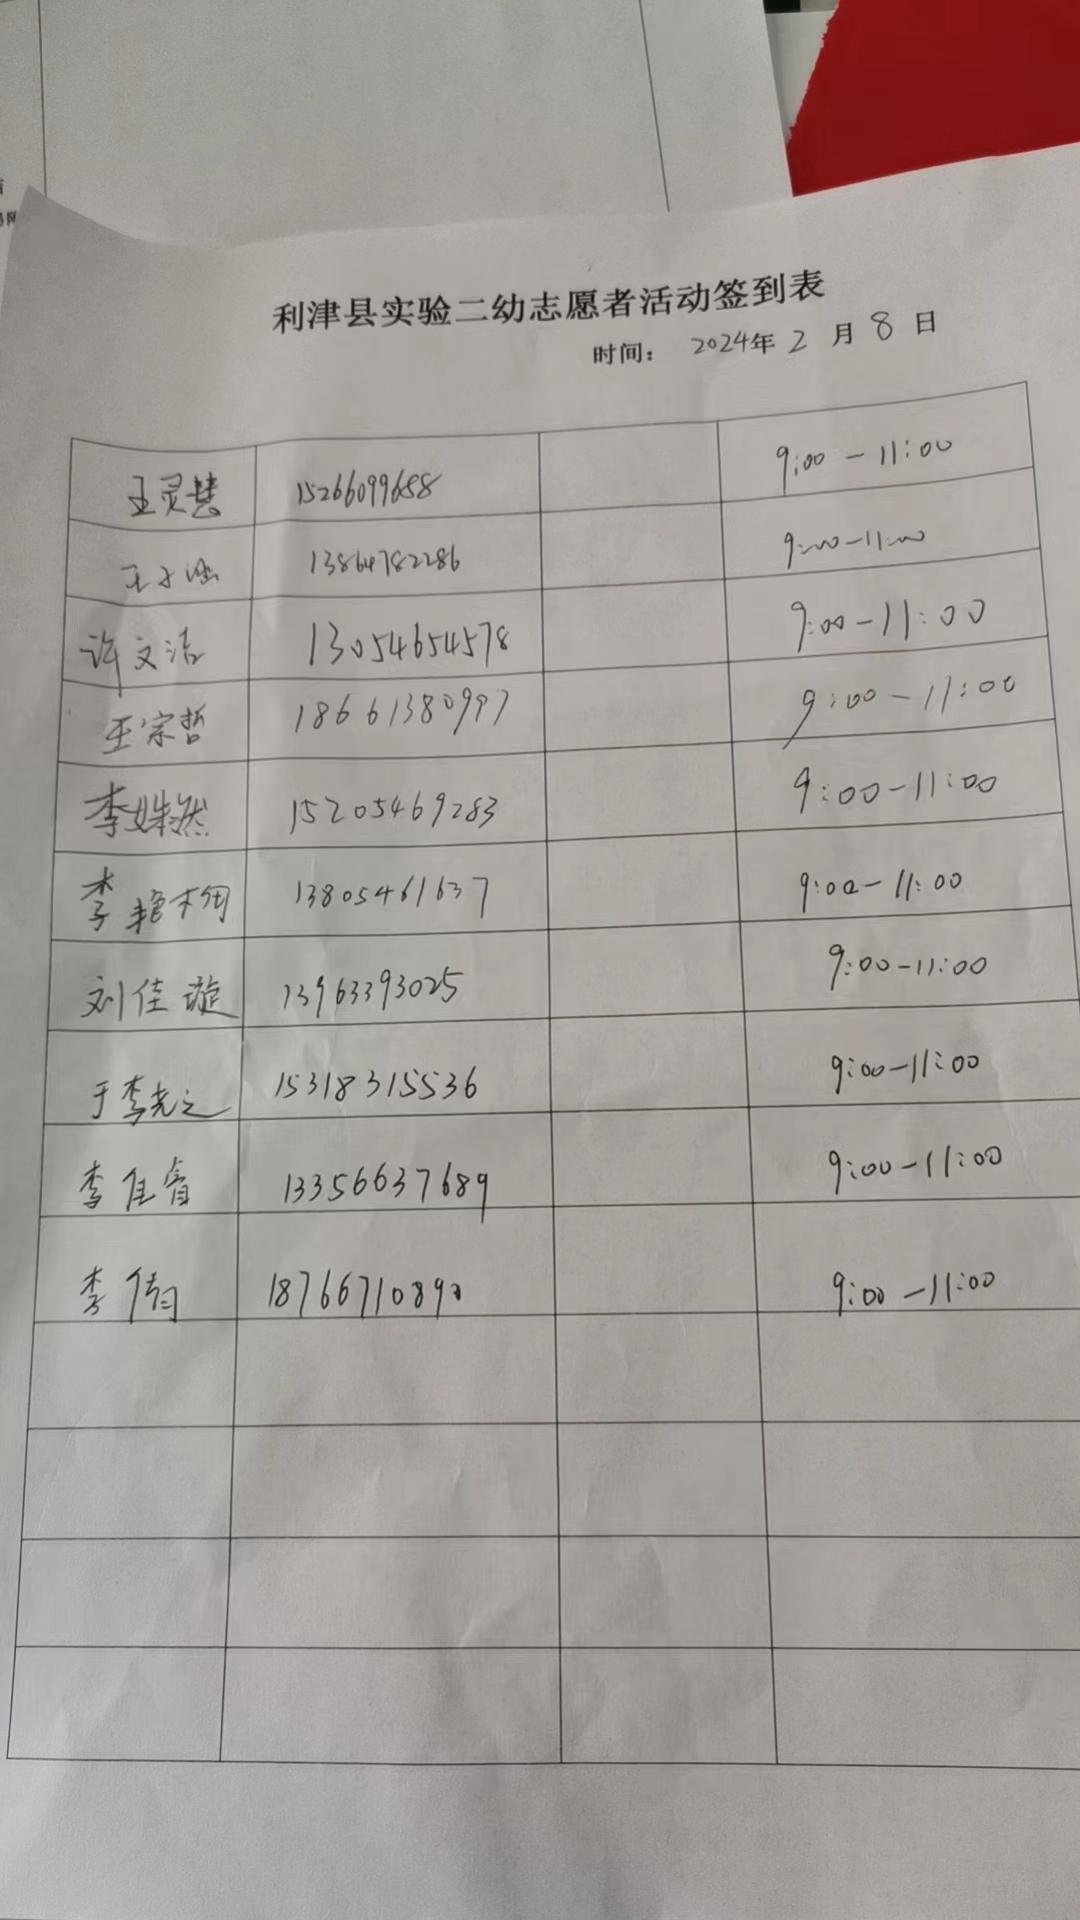 利津县实验二幼志愿者活动签到表
时间： 2024年 2 月 8 日
王灵慧 15266099688 9:00-11:00
王子涵 13864782286 9:00-11:00
许文洁 13054654578 9:00-11:00
王宗哲 18661380997 9:00-11:00
李姝然 15205469283 9:00-11:00
李艳 13805461637 9:00-11:00
刘佳璇 13963393025 9:00-11:00
于李尧之 15318315536 9:00-11:00
李佳睿 13356637689 9:00-11:00
李倩 18766710890 9:00-11:00